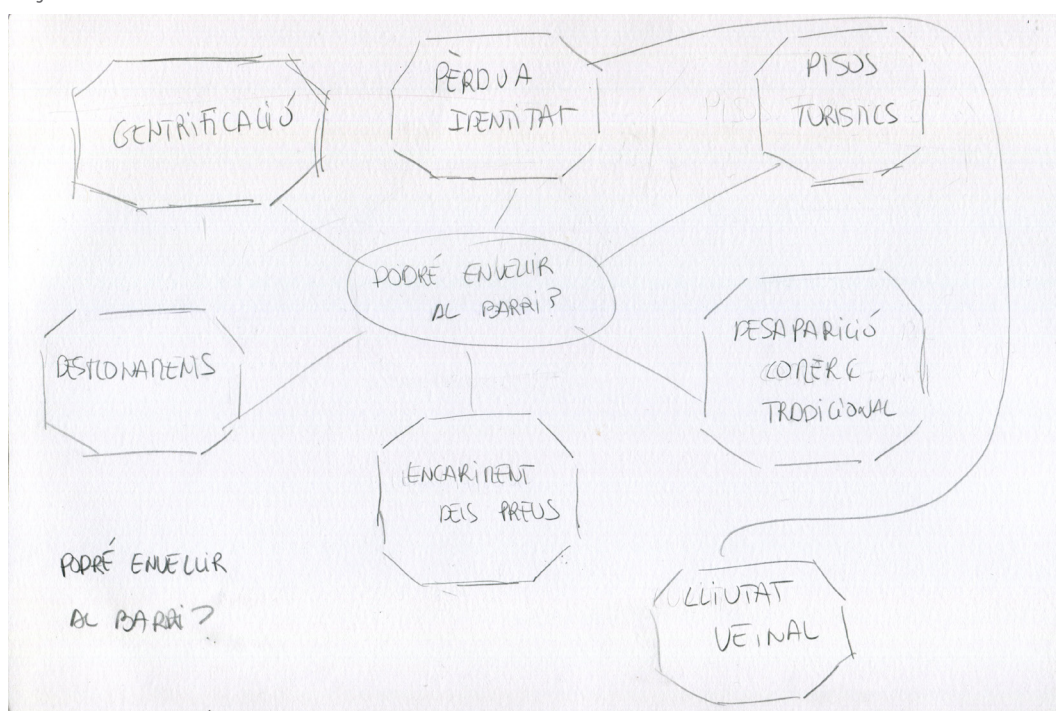 GENTRIFICACIÓ
PÈRDUA
IDENTITAT
PISOS
TURISTICS
PODRÉ ENVELLIR
AL BARRI?
DESNONAMENTS
DESAPARICIÓ
COMERÇ
TRADICIONAL
ENCARIMENT
DELS PREUS
PODRÉ ENVELLIR
AL BARRI?
LLIUTAT
VEINAL